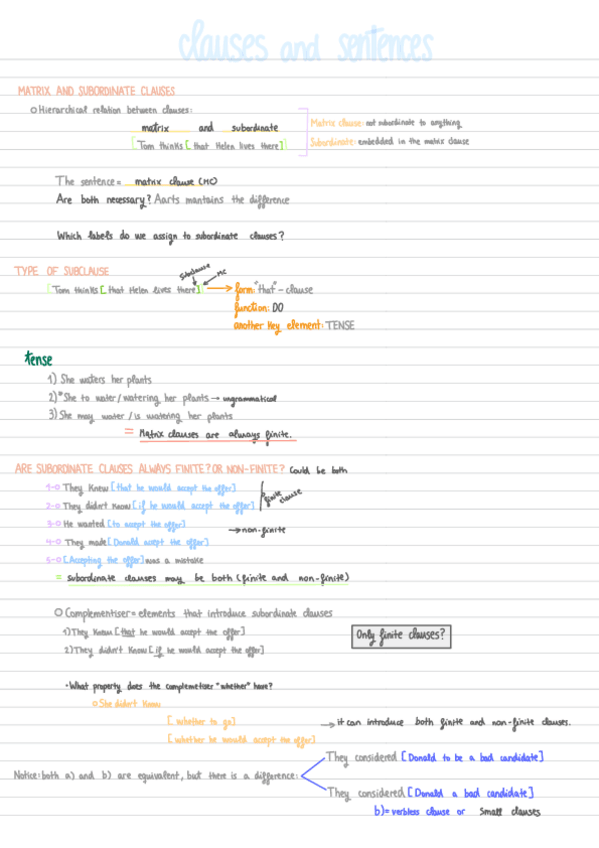 clauses and sentences
MATRIX AND SUBORDINATE CLAUSES
O Hierarchical relation between clauses:
matrix and subordinate
[Tom thinks [that Helen lives there]]
Matrix clause: not subordinate to anything
Subordinate: embedded in the matrix clause
The sentence = matrix clause (MC)
Are both necessary? Aarts mantains the difference
Which labels do we assign to subordinate clauses?
TYPE OF SUBCLAUSE
Subclause
MC
[Tom thinks [that Helen lives there]] → form: "that" - clause
function: DO
another key element: TENSE
tense
1) She waters her plants
2) *She to water / watering her plants → ungrammatical
3) She may water / is watering her plants
= Matrix clauses are always finite.
ARE SUBORDINATE CLAUSES ALWAYS FINITE? OR NON-FINITE? Could be both
1-O They Knew [that he would accept the offer]
2-O They didn't Know [if he would accept the offer]
finite clause
3-O He wanted [to accept the offer]
→ non-finite
4-O They made [Donald accept the offer]
5-O [Accepting the offer] was a mistake
= subordinate clauses may be both (finite and non-finite)
O Complementiser = elements that introduce subordinate clauses
1) They Knew [that he would accept the offer]
2) They didn't Know [if he would accept the offer]
Only finite clauses?
• What property does the complemetiser "whether" have?
O She didn't Know
[whether to go]
[whether he would accept the offer]
→ it can introduce both finite and non-finite clauses.
Notice: both a) and b) are equivalent, but there is a difference:
They considered [Donald to be a bad candidate]
They considered [Donald a bad candidate]
b) = verbless clause or Small clauses